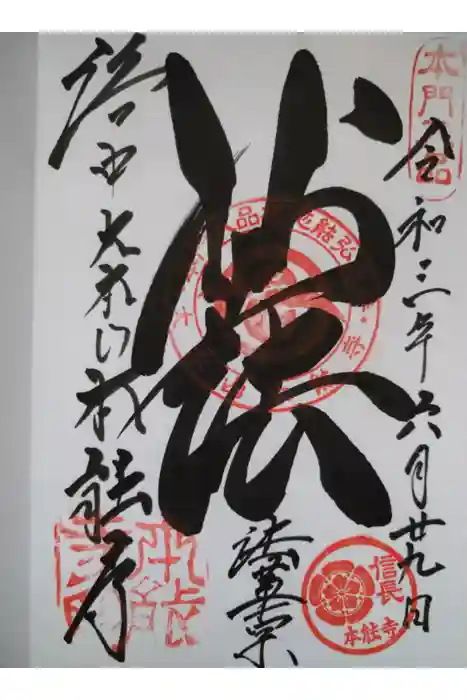 本門八品
令和三年六月廿九日
妙法
法華宗
信長
本能寺
洛中大本山本能寺